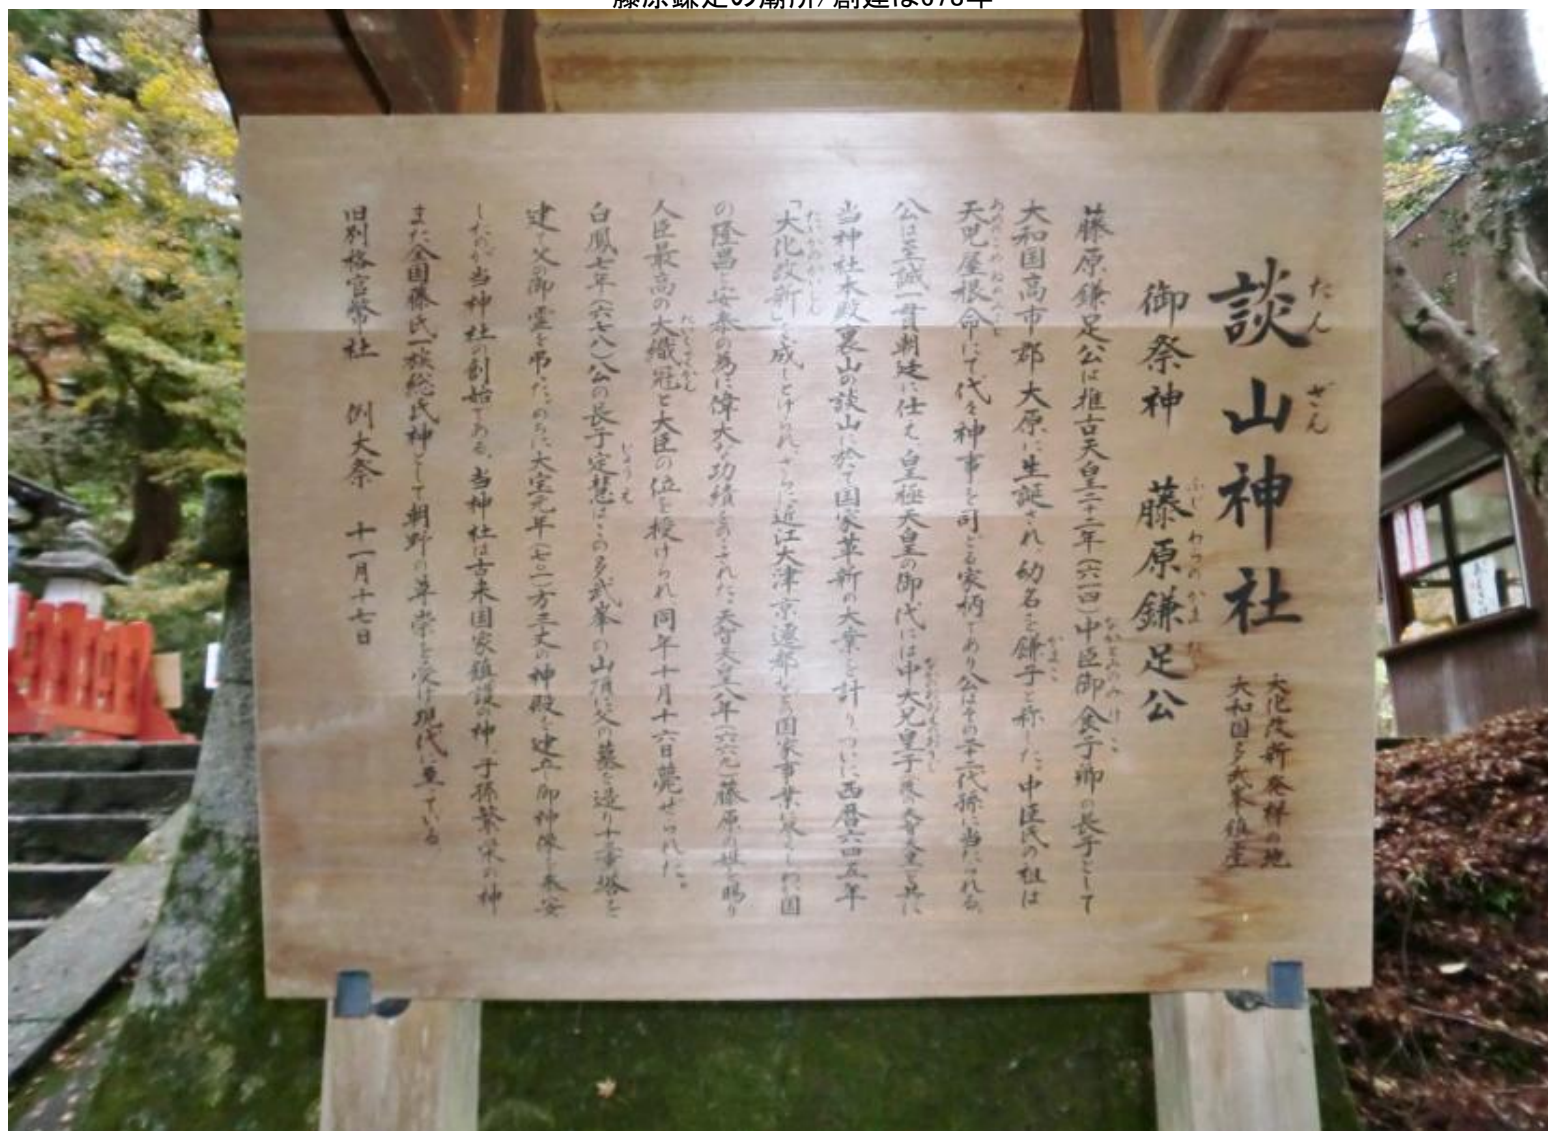 藤原鎌足の廟所/創建は678年
談山神社
たん ざん
大化改新発祥の地
大和国多武峯鎮座
御祭神 藤原鎌足公
ふじわらのかまたり
藤原鎌足公は推古天皇二十二年(六一四)中臣御食子卿の長子として
なかとみのみけこ
大和国高市郡大原に生誕され、幼名を鎌子と称した。中臣氏の祖は
かまこ
天児屋根命にて代々神事を司どる家柄であり公はその二十二代孫に当たられる。
あめのこやねのみこと
公は至誠一貫朝廷に仕え皇極天皇の御代には中大兄皇子後の天智天皇と共に
なかのおおえのおうじ
当神社本殿裏山の談山に於て国家革新の大業を計りついに西暦六四五年
「大化改新」を成しとげられ、さらに近江大津京遷都など国家事業をすすめ国
たいかのかいしん
の隆昌と安泰の為に偉大な功績をのこされた。天智天皇八年(六六九)藤原の姓を賜り
人臣最高の大織冠と大臣の位を授けられ同年十月十六日薨ぜられた。
たいしょくかん
白鳳七年(六七八)公の長子定慧はこの多武峯の山頂に父の墓を造り十三重塔を
じょうえ
建て父の御霊を弔った。のちに大宝元年(七〇一)方三丈の神殿を建て御神像を奉安
したのが当神社の創始である。当神社は古来国家鎮護の神、子孫繁栄の神
また全国藤氏一族総氏神として朝野の尊崇を受け現代に至っている。
旧別格官幣社 例大祭 十一月十七日